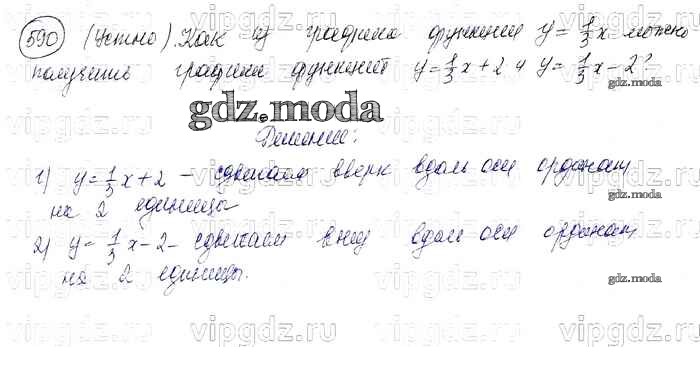 vipgdz.ru vipgdz.ru vipgdz.ru
590 (Устно). Как из графика функции y = 1/3 x можно
получить графики функций y = 1/3 x + 2 и y = 1/3 x - 2?
gdz.moda
Решение:
1) y = 1/3 x + 2 - сдвигаем вверх вдоль оси ординат
на 2 единицы
gdz.moda
2) y = 1/3 x - 2 - сдвигаем вниз вдоль оси ординат
на 2 единицы.
gdz.moda
vipgdz.ru vipgdz.ru vipgdz.ru